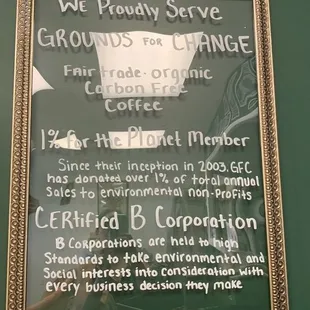 We Proudly Serve
GROUNDS FOR CHANGE
Fair trade · organic
Carbon Free
Coffee
1% for the Planet Member
Since their inception in 2003, GFC
has donated over 1% of total annual
Sales to environmental non-Profits
CERtified B Corporation
B Corporations are held to high
Standards to take environmental and
Social interests into consideration with
every business decision they make